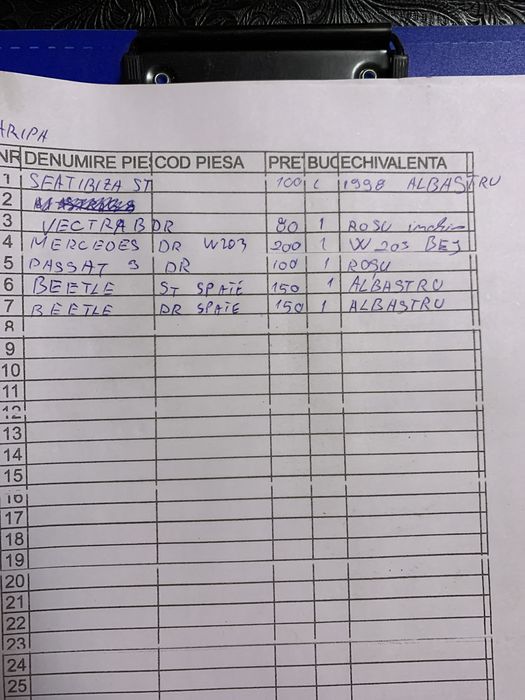 ARIPA
NR DENUMIRE PIES COD PIESA PRET BUC ECHIVALENTA
1 SEAT IBIZA ST 100 1998 ALBASTRU
2
3 VECTRA B DR 80 1 ROSU inchis
4 MERCEDES DR W203 200 1 W203 BEJ
5 PASSAT DR 100 1 ROSU
6 BEETLE ST SPATE 150 1 ALBASTRU
7 BEETLE DR SPATE 150 1 ALBASTRU
8
9
10
11
12
13
14
15
16
17
18
19
20
21
22
23
24
25